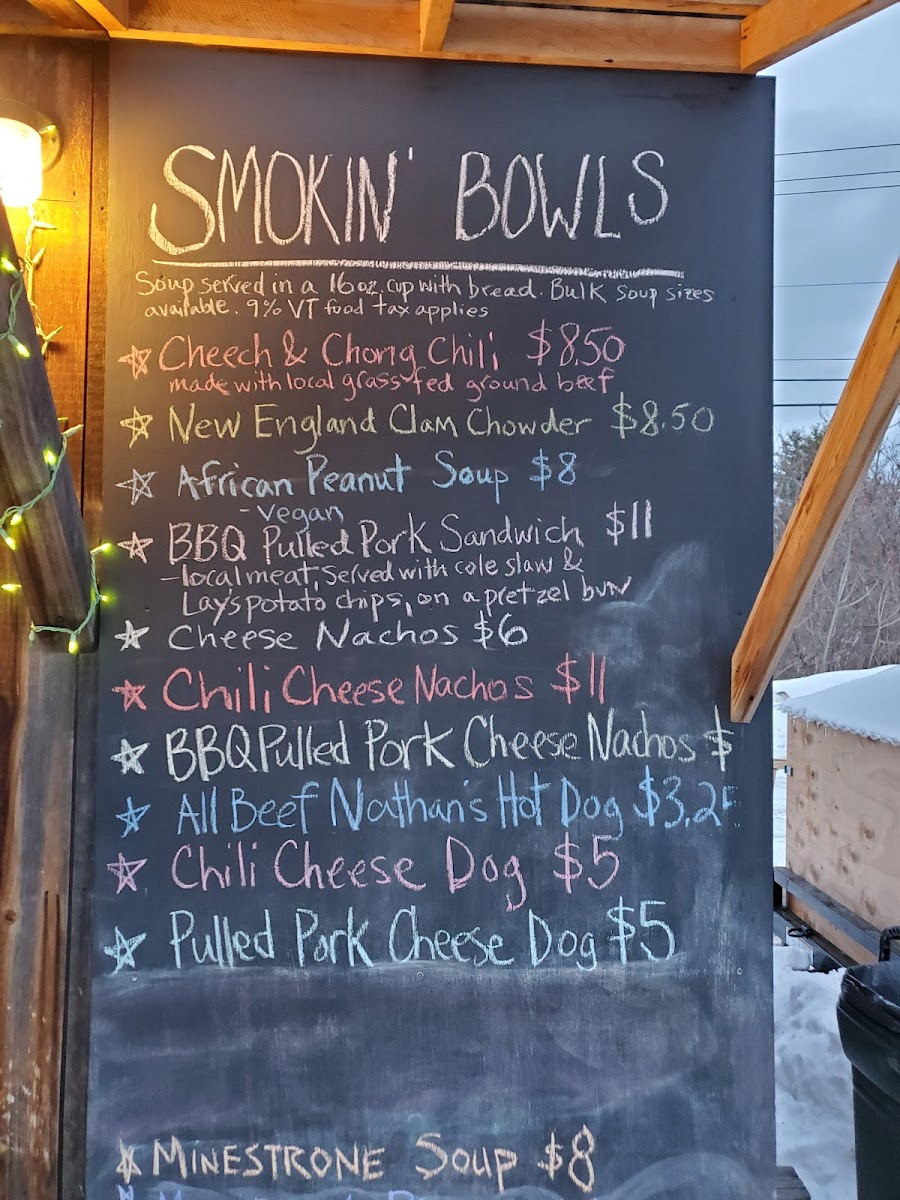 SMOKIN' BOWLS
Soup served in a 16oz. cup with bread. Bulk soup sizes
available. 9% VT food tax applies
Cheech & Chong Chili $8.50
made with local grass-fed ground beef
New England Clam Chowder $8.50
African Peanut Soup $8
- vegan
BBQ Pulled Pork Sandwich $11
- local meat, served with cole slaw &
Lay's potato chips, on a pretzel bun
Cheese Nachos $6
Chili Cheese Nachos $11
BBQ Pulled Pork Cheese Nachos $
All Beef Nathan's Hot Dog $3.25
Chili Cheese Dog $5
Pulled Pork Cheese Dog $5
MINESTRONE Soup $8